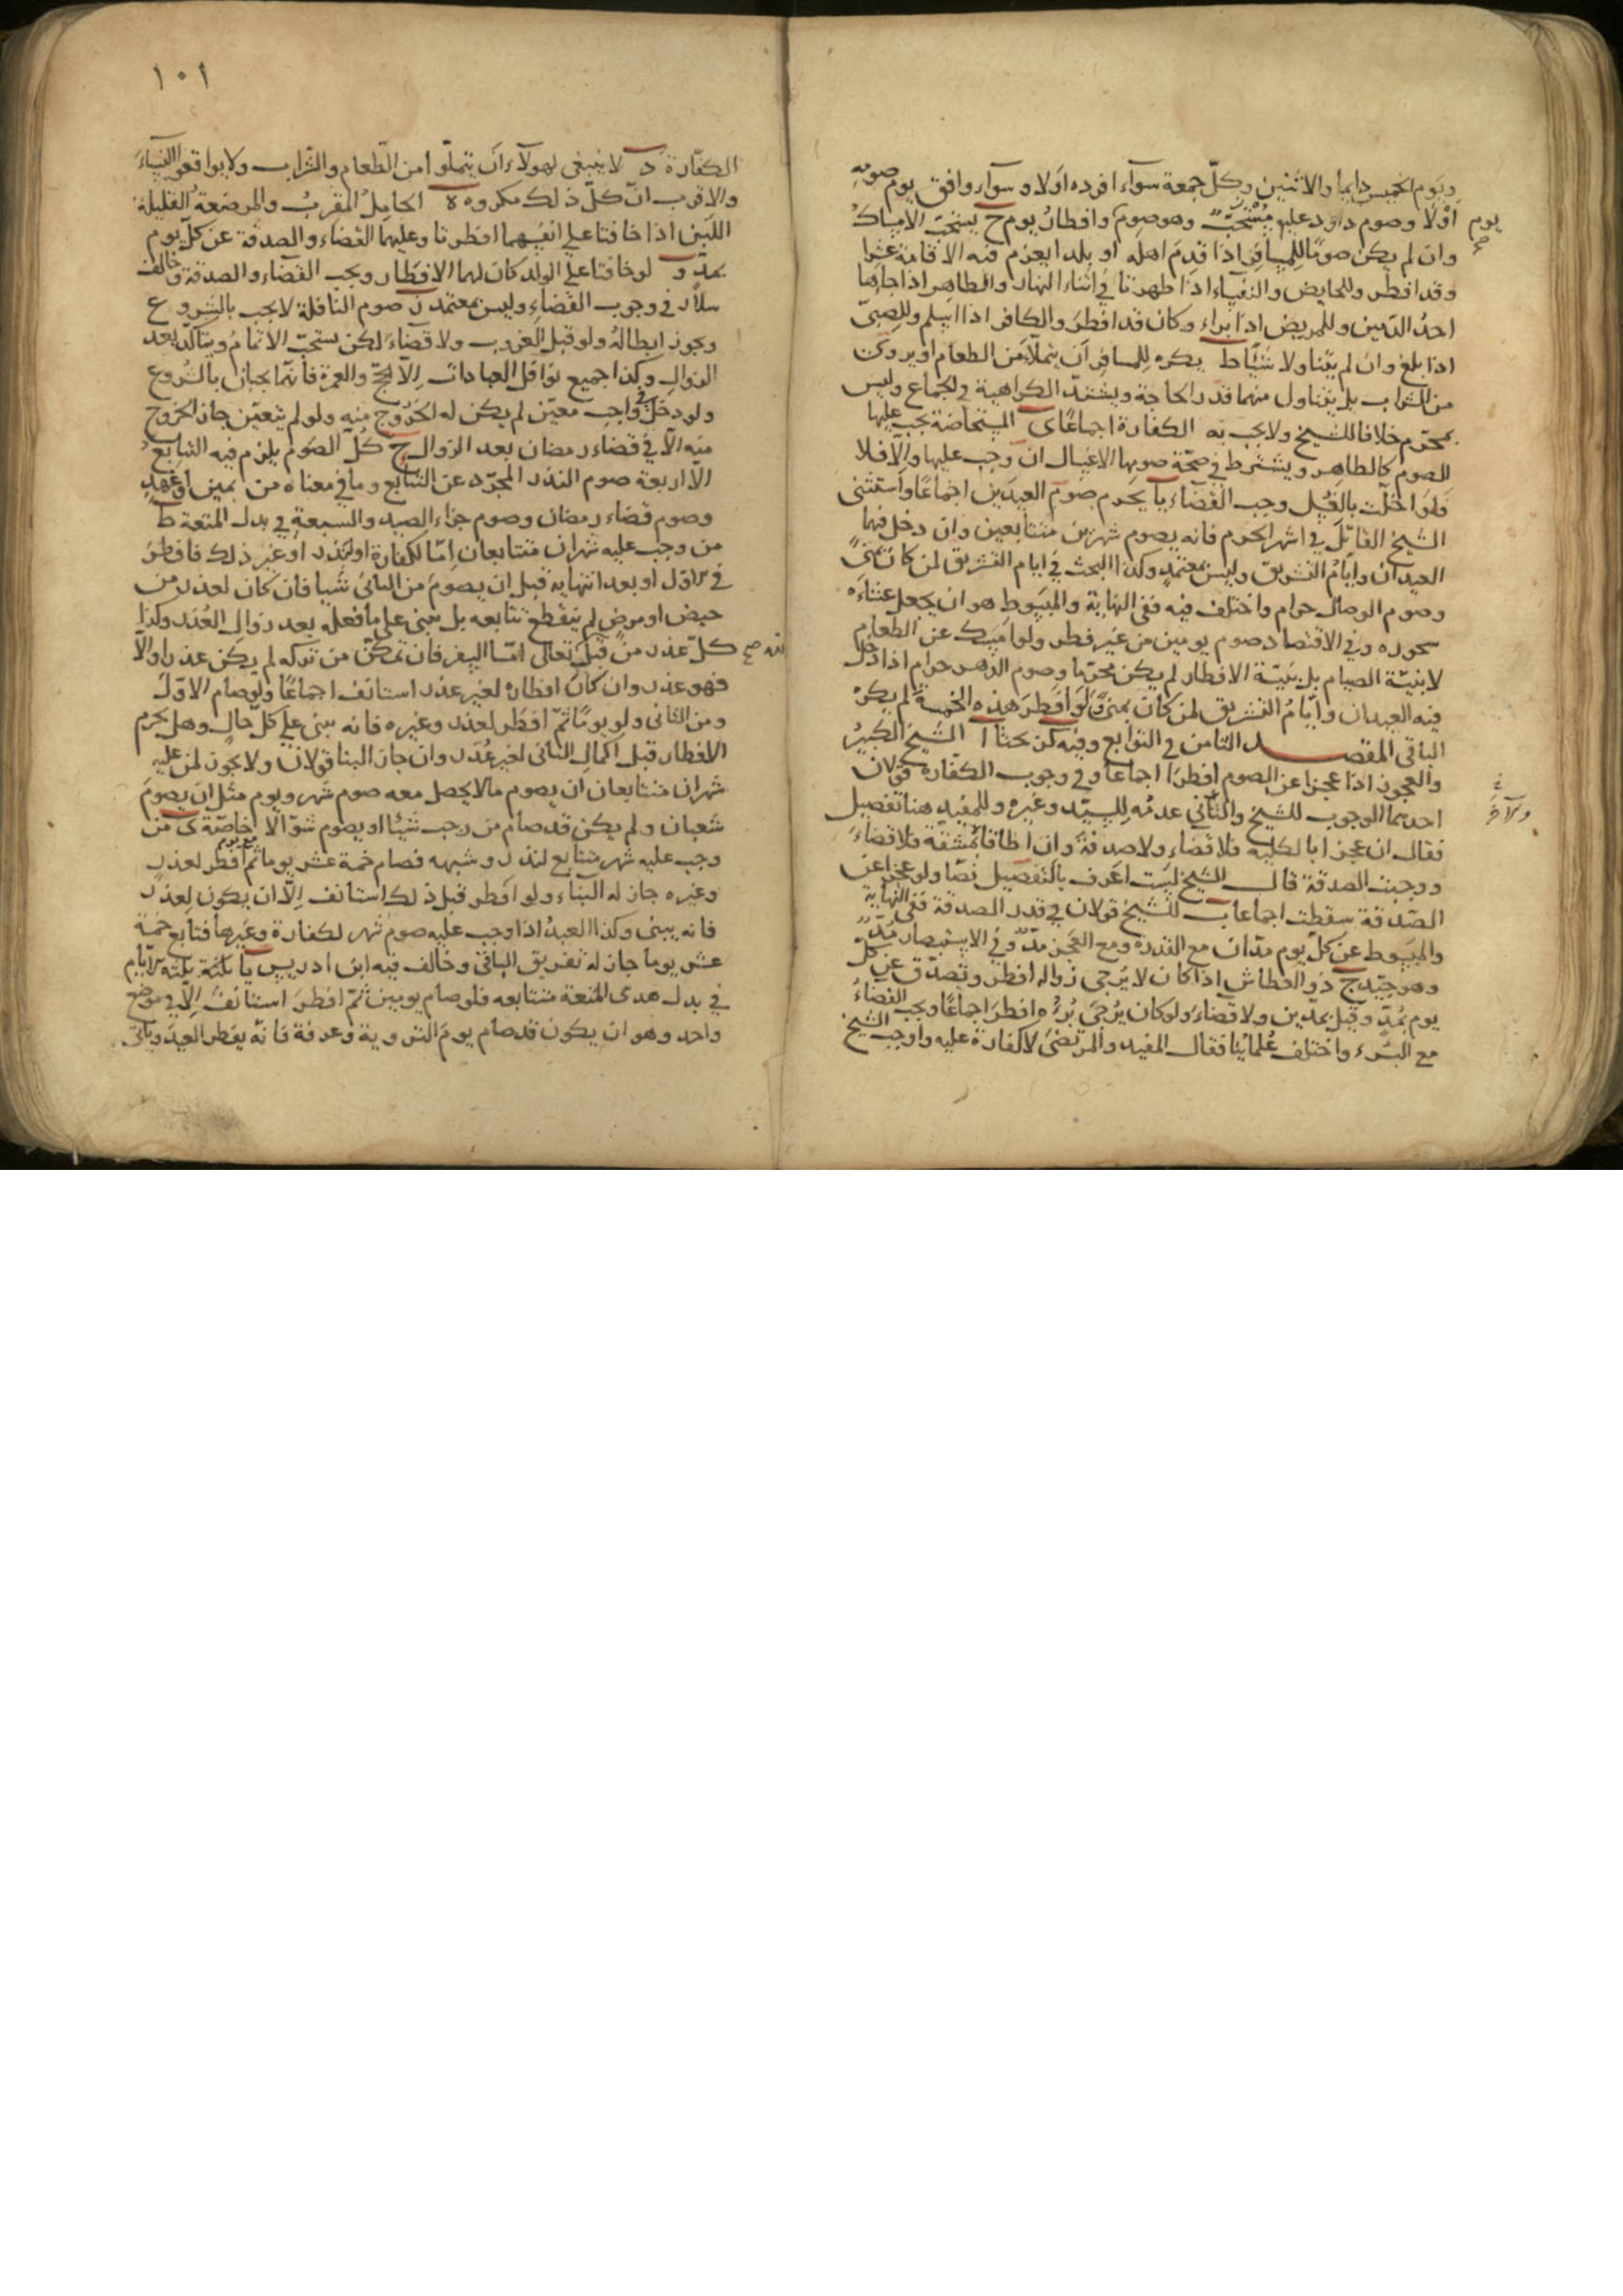 ويوم الخميس دايما والاثنين وكلّ جمعة سوآء افرده اَولا وسوآء وافق يوم صومه
يوم صح
اوْلا وصوم داود عليه مُسْتحَبّ وهو صوم وافطارُ يوم ح يستحبّ الامساكُ
وان لم يكن صومًا للمسافر اذا قدِمَ اهله او بلدا يعزم فيه الاقامة عشرا
وقد افطر وللحايض والنفساء اذا طهرتا في اثناء النهار والطاهر اذا جاءها
احدُ الدمين وللمريض اذا براء وكان قد افطرَ والكافر اذا اسلم وللصبىّ
اذا بلغ وان لم يتناولا شيئًا ط يكره للمسافر ان يتملّأ من الطعام او يروى
من الشراب بل يتناول منهما قدر الحاجة ويشتدّ الكراهية في الجماع وليس
بمحرّم خلافا للشيخ ولا يجب به الكفارة اجماعًا ى المستحاضة يجب عليها
الصوم كالطاهر ويشترط في صحّة صومها الاغسال ان وجب عليها والّا فلا
فلو اخلّت بالغسل وجب القضاء يا يحرم صوم العيدين اجماعًا واستثنى
الشيخ القاتلَ في اشهر الحرم فانه يصوم شهرين متتابعين وان دخل فيهما
العيدان وايّامُ التشريق وليس بمعتمدٍ وكذا البحث في ايام التشريق لمن كان بمنًى
وصوم الوصال حرام واختلف فيه ففي النهاية والمبسوط هو ان يجعل عشاءَه
سحوره وفي الاقتصاد صوم يومين من غير فطر ولو امسك عن الطعام
لا بنيّة الصيام بل بنيّة الافطار لم يكن محرّما وصوم الدهر حرام اذا دخل
فيه العيدان وايّامُ التشريق لمن كان بمنًى ولو افطر هذه الخمسة لم يكره
الباقى المقصد الثامن في التوابع وفيه كن بحثا ا الشيخ الكبيرُ
والعجوز اذا عجزا عن الصوم افطرا اجماعا وفي وجوب الكفارة قولان
احدهما الوجوب للشيخ والثاني عدمُه للسيّد وغيره وللمفيد هنا تفصيل
فقال ان عجزا بالكلية فلا قضاء ولا صدقة وان اطاقا بمشقّة فلا قضاءَ
ووجبت الصدقة قال الشيخ لست اعرف بالتفصيل نصّا ولو عجزا عن
الصّدقة سقطت اجماعا ب للشيخ قولان في قدر الصدقة ففي النهاية
والمبسوط عن كلّ يوم مدّان مع القدرة ومع العجز مدّ وفي الاستبصار مدّ
وهو جيّد ج ذو العطاش اذا كان لا يرجى زواله افطر وتصدّق عن كلّ
يوم بمُدّ وقيل بمدّين ولا قضاءَ ولو كان يُرْجَى بُرْؤه افطرَ اجماعًا ويجب القضاءُ
مع البرء واختلف عُلماؤنا فقال المفيد والمرتضى لا كفارة عليه واوجب الشيخ
١٠١
الكفّارة د لا ينبغى لهولآء ان يتملّوا من الطّعام والشّراب ولا يواقعوا النساءَ
والاقرب انّ كلّ ذلك مكروه ه الحامِلُ المقرِبُ والمرضعةُ القليلة
اللبَن اذا خافتا على انفسهما افطرتا وعليهما القضاء والصدقة عن كلّ يوم
بمدّ و لو خافتا على الولد كان لهما الافطار ويجب القضاء والصدقة وخالف
سلّار في وجوب القضاء وليس بمعتمد ز صوم النافلة لا يجب بالشروع
ويجوز ابطالهُ ولو قبل الغروب ولا قضاءَ لكن يستحبّ الاتمامُ ويتأكّد بعد
الزوال وكذا جميع نوافل العبادات اِلّا الحجّ والعمرة فانّهما يجبان بالشروع
ولو دخل في واجب معيّن لم يكن له الخروج منه ولو لم يتعيّن جاز الخروج
منه الّا في قضاء رمضان بعد الزوال ح كلّ الصوم يلزم فيه التتابعُ
الّا اربعة صوم النذر المجرّد عن التتابع وما في معناه من يمين او عهدٍ
وصوم قضاء رمضان وصوم جزاء الصيد والسبعةِ في بدل المتعة ط
من وجب عليه شهران متتابعان اِمّا لكفارة او لنذر او غير ذلك فافطر
في الاوّل او بعد انتهايه قبل ان يصوم من الثانى شيا فان كان لعذر من
حيض او مرض لم ينقطع تتابعه بل يبنى على ما فعله بعد زوال العُذر وكذا
كلّ عذر من قبل الله صح تعالى امّا السفر فان تمكّن من تركه لم يكن عذرا والّا
فهو عذر وان كان افطارهُ لغير عذر استانف اجماعًا ولو صام الاوّلَ
ومن الثانى ولو يومًا ثمّ افطر لعذر وغيره فانه يبنى على كلّ حالٍ وهل يحرم
الافطار قبل اكمال الثانى لغير عُذر وان جاز البنا قولان ولا يجوز لمن عليه
شهران متتابعان ان يصوم مالا يحصل معه صوم شهر ويوم مثل ان يصومَ
شعبان ولم يكن قد صام من رجب شيئا او يصوم شوّالا خاصّة ى من
وجب عليه شهر متتابع لنذر وشبهه فصام خمسة عشر يوما ثمّ افطر لعذر
وغيره جاز له البناء ولو افطر قبل ذلك استانف اِلّا ان يكون لعذر
فانه يبنى وكذا العبدُ اذا وجب عليه صوم شهر لكفارة وغيرها فتابع خمسة
عشر يوما جاز له تفريق الباقى وخالف فيه ابن ادريس يا ثلثة ايّام
في بدل هدى المتعة متتابعه فلو صام يومين ثمّ افطرَ استانفَ اِلّا في موضع
واحد وهو ان يكون قد صام يوم التروية وعرفة فانّه يفطر العيدَ وياتى